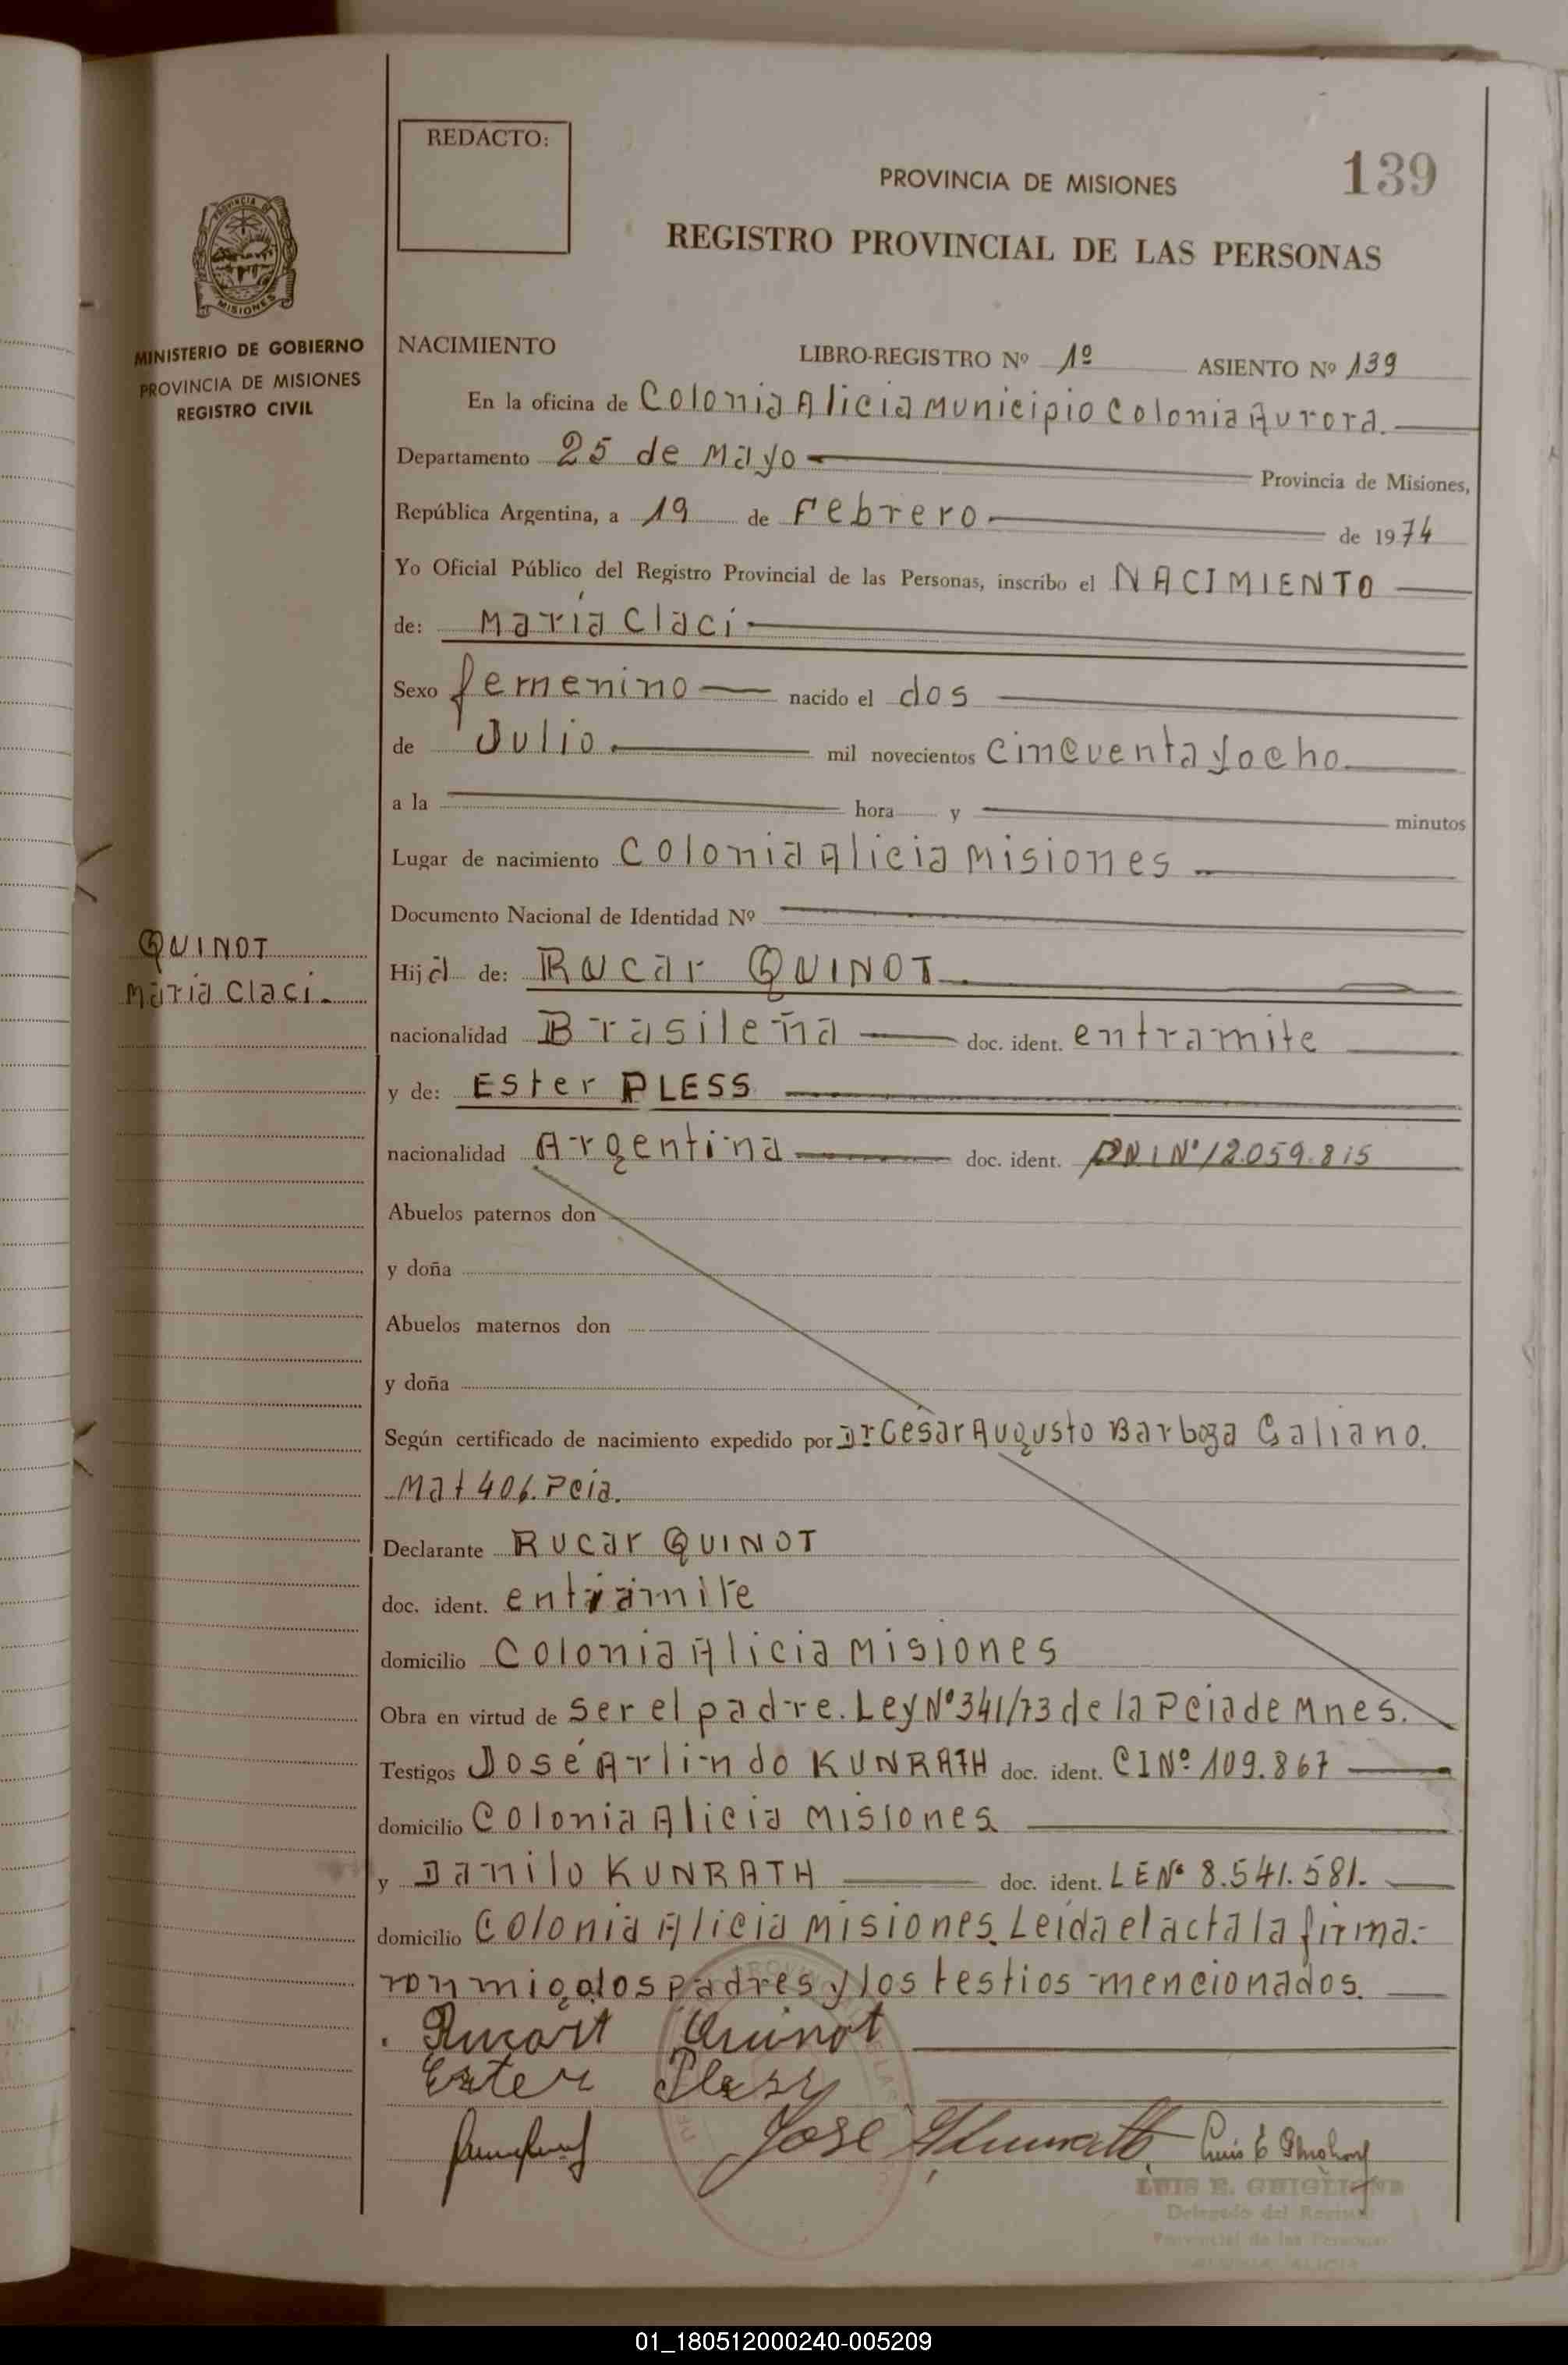 REDACTO:
PROVINCIA DE MISIONES
139
REGISTRO PROVINCIAL DE LAS PERSONAS
PROVINCIA DE
MISIONES
MINISTERIO DE GOBIERNO
PROVINCIA DE MISIONES
REGISTRO CIVIL
NACIMIENTO LIBRO-REGISTRO Nº 1º ASIENTO Nº 139
En la oficina de Colonia Alicia Municipio Colonia Aurora.
Departamento 25 de Mayo Provincia de Misiones,
República Argentina, a 19 de Febrero de 1974
Yo Oficial Público del Registro Provincial de las Personas, inscribo el NACIMIENTO
de: María Claci
Sexo femenino nacido el dos
de Julio. mil novecientos cincuenta y ocho.
a la hora y minutos
Lugar de nacimiento Colonia Alicia Misiones
Documento Nacional de Identidad Nº
QUINOT
María Claci.
Hija de: Rucar QUINOT
nacionalidad Brasileña doc. ident. entramite
y de: Ester PLESS
nacionalidad Argentina doc. ident. DNI Nº 12.059.815
Abuelos paternos don
y doña
Abuelos maternos don
y doña
Según certificado de nacimiento expedido por Dr César Augusto Barboza Galiano.
Mat 406. Pcia.
Declarante Rucar QUINOT
doc. ident. entramite
domicilio Colonia Alicia Misiones
Obra en virtud de ser el padre. Ley Nº 341/73 de la Pcia de Mnes.
Testigos José Arlindo KUNRATH doc. ident. CI Nº 109.867
domicilio Colonia Alicia Misiones
y Danilo KUNRATH doc. ident. LE Nº 8.541.581.
domicilio Colonia Alicia Misiones. Leída el acta la firma-
ron migo los padres y los testios mencionados.
Rucart Quinot
Ester Pless
José A Kunrath
LUIS E. GHIGLIONE
Delegado del Registro
Provincial de las Personas
COLONIA ALICIA
01_180512000240-005209